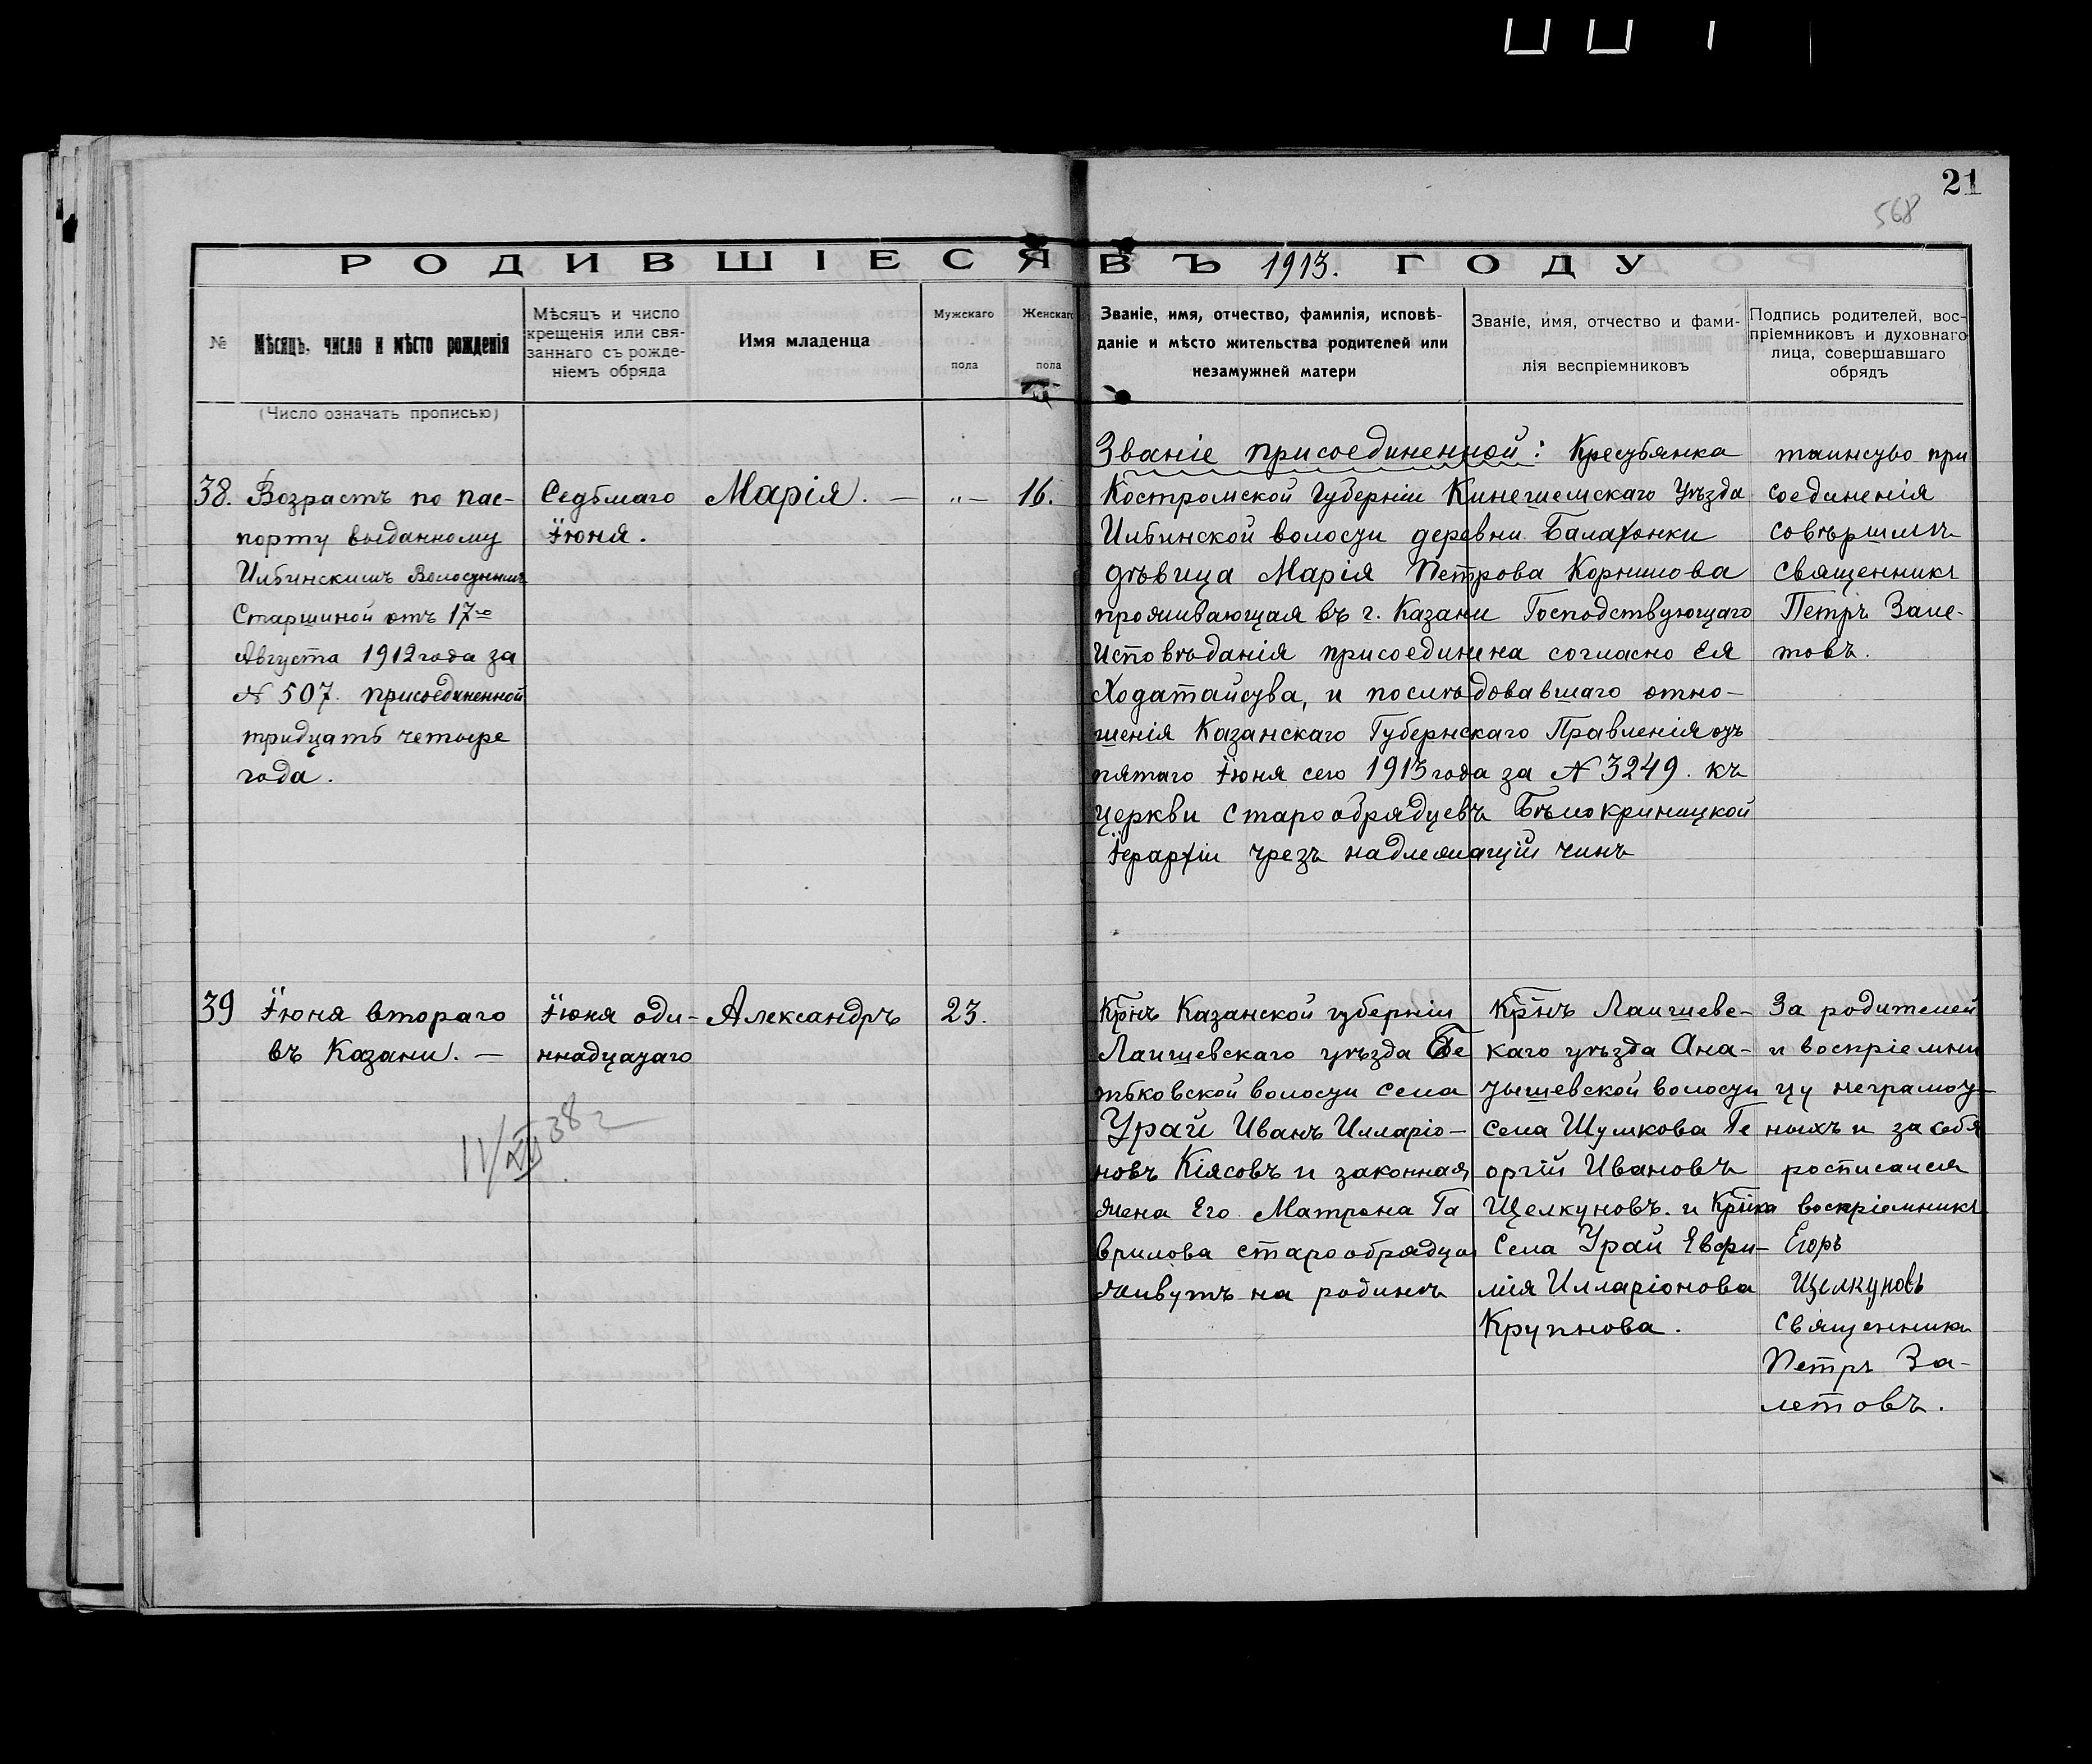 21
568
РОДИВШІЕСЯ ВЪ 1913. ГОДУ
№
Мѣсяцъ, число и мѣсто рожденія
Мѣсяцъ и число
крещенія или свя-
заннаго съ рожде-
ніемъ обряда
Имя младенца
Мужскаго
пола
Женскаго
пола
Званіе, имя, отчество, фамилія, исповѣ-
даніе и мѣсто жительства родителей или
незамужней матери
Званіе, имя, отчество и фами-
лія веспріемниковъ
Подпись родителей, вос-
пріемниковъ и духовнаго
лица, совершавшаго
обрядъ
(Число означать прописью)
38.
Возрастъ по пас-
порту выданному
Илбинскимъ Волостнымъ
Старшиной отъ 17го
Августа 1912 года за
№ 507. присоединенной
тридцать четыре
года.
Седьмаго
Іюня.
Марія. —
„ —
16.
Званіе присоединенной: Крестьянка
Костромской Губерніи Кинешемскаго Уѣзда
Илбинской волости деревни Балахонки
дѣвица Марія Петрова Корнилова
проживающая въ г. Казани Господствующаго
Исповѣданія присоединена согласно Ея
Ходатайства, и послѣдовавшаго отно-
шенія Казанскаго Губернскаго Правленія отъ
пятаго Іюня сего 1913 года за № 3249. къ
церкви старообрядцевъ Бѣлокриницкой
Іерархіи чрезъ надлежащій чинъ
таинство при
соединенія
совѣршилъ
священникъ
Петръ Зале-
товъ.
39
Іюня втораго
въ Казани. —
Іюня оди-
ннадцатаго
Александръ
23.
Крн̃ъ Казанской губерніи
Лаишевскаго уѣзда Бе
тьковской волости села
Урай Иванъ Илларіо-
новъ Кіясовъ и законная
жена Его Матрона Га
врилова старообрядцы
живутъ на родинѣ
Крн̃ъ Лаишевс-
каго уѣзда Ана-
тышевской волости
села Шумкова Ге
оргій Ивановъ
Щелкуновъ. и Кр̃нка
Села Урай Евфи-
мія Илларіонова
Крупнова.
За родителей
и воспріемни
цу неграмот-
ныхъ и за себя
росписался
воспріемникъ
Егоръ
Щелкуновъ
Священникъ
Петръ За-
летовъ.
38 г